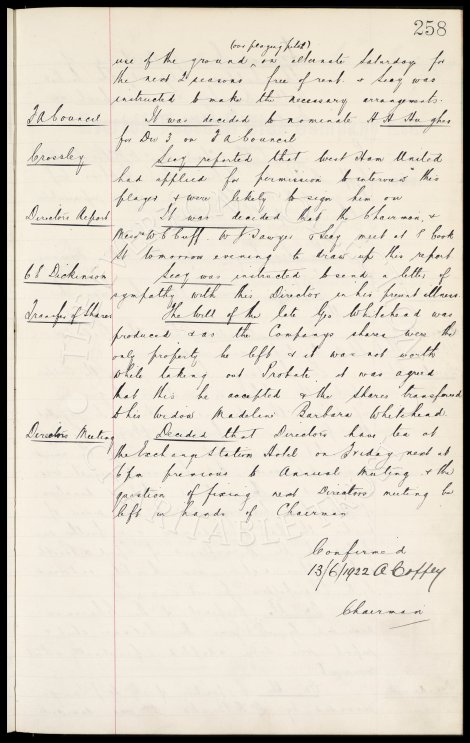 258
(our playing pitch)
use of the ground, on alternate Saturdays for
the next 2 seasons free of rent. & Secy was
instructed to make the necessary arrangements.
F A Council It was decided to nominate H H Hughes
for Div 3 on F A Council
Crossley Secy reported that West Ham United
had applied for permission to interview this
player & were likely to sign him on
Directors Report It was decided that the Chairman, &
Messrs W C Cuff, W J Sawyer & Secy meet at 8 Cook
St tomorrow evening to draw up this report
C S Dickinson Secy was instructed to send a letter of
sympathy with this Director in his present illness.
Transfer of Shares The Will of the late Geo Whitehead was
produced & as the Companys shares were the
only property he left & it was not worth
while taking out Probate, it was agreed
that this be accepted & the shares transferred
to his widow Madeline Barbara Whitehead.
Directors Meeting Decided that Directors have tea at
the Exchange Station Hotel on Friday next at
6pm previous to Annual Meeting & the
question of fixing next Directors meeting be
left in hands of Chairman
Confirmed
13/6/1922 A Coffey
Chairman